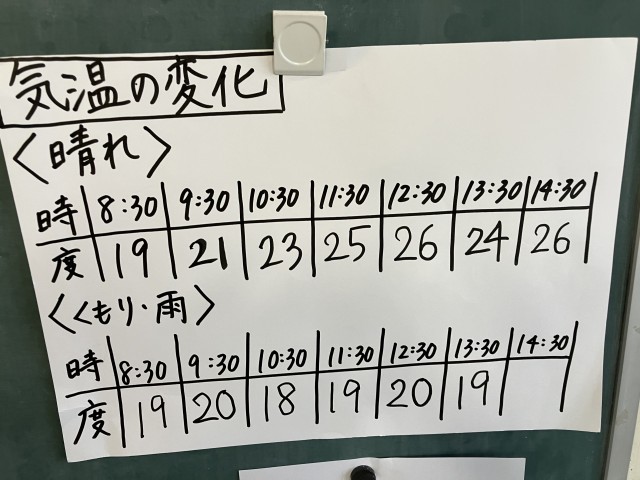 気温の変化
〈晴れ〉
時 8:30 9:30 10:30 11:30 12:30 13:30 14:30
度 19 21 23 25 26 24 26
〈くもり・雨〉
時 8:30 9:30 10:30 11:30 12:30 13:30 14:30
度 19 20 18 19 20 19